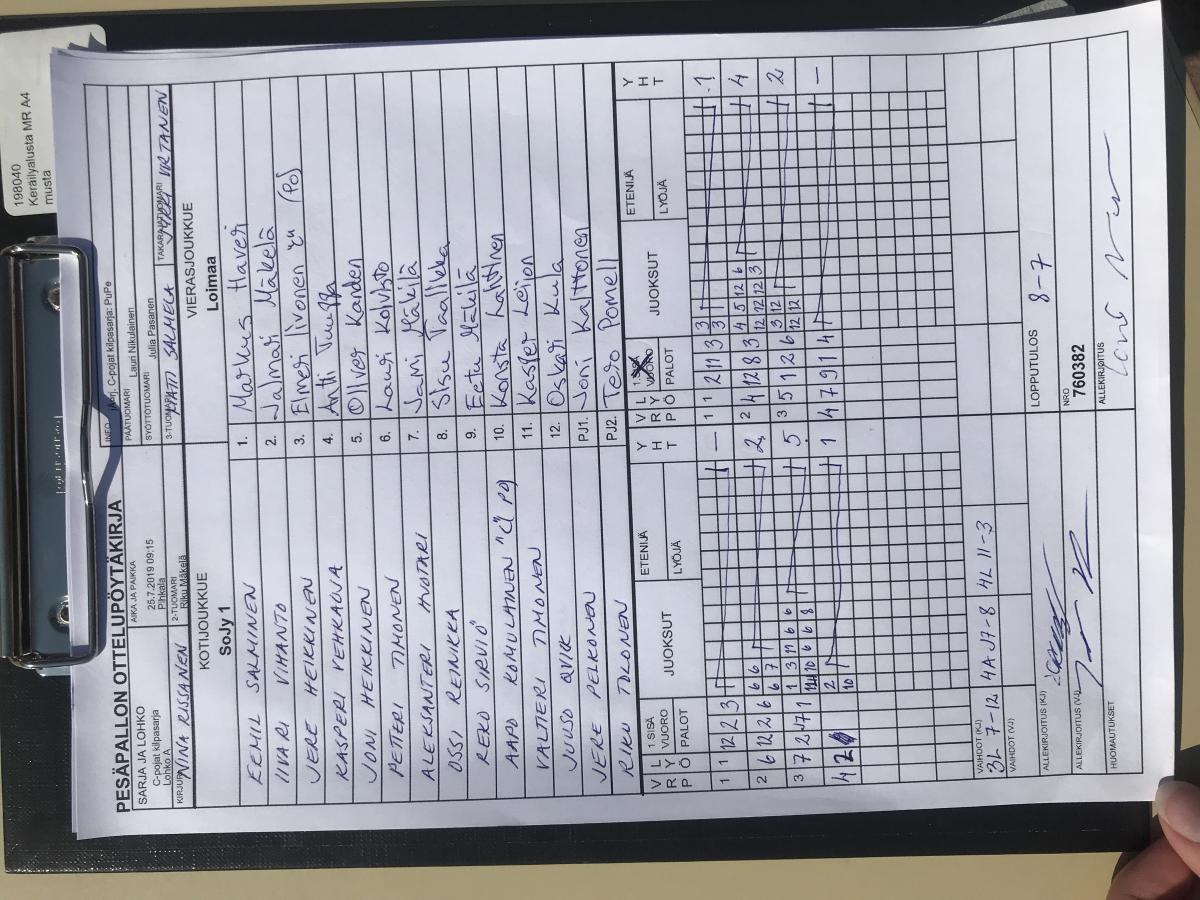 198040
Keräilyalusta MR A4
musta
PESÄPALLON OTTELUPÖYTÄKIRJA
SARJA JA LOHKO
C-pojat kilpasarja
Lohko A
AIKA JA PAIKKA
25.7.2019 09:15
Pihkala
C-pojat kilpasarja: PuPe
PÄÄTUOMARI
Lauri Nikulainen
SYÖTTÖTUOMARI
Julia Pasanen
KIRJURI
NINA RISSANEN
2-TUOMARI
Riku Mäkelä
3-TUOMARI
MATTI SALMELA
TAKARAJATUOMARI
VIRTANEN
KOTIJOUKKUE
SoJy 1
VIERASJOUKKUE
Loimaa
EEMIL SALMINEN 1. Markus Haveri
IIVARI VIHANTO 2. Jalmari Mäkelä
JERE HEIKKINEN 3. Elmeri Iivonen
KASPERI VEHKAOJA 4. Antti
JONI HEIKKINEN 5. Oliver Kanden
PETTERI TIMONEN 6. Lauri Koivisto
ALEKSANTERI HUOTARI 7. Jami Mäkilä
OSSI REINIKKA 8. Sisu Vaalikka
REKO SIRVIÖ 9. Eetu Mäkilä
AAPO KOMULAINEN 10. Konsta Lahtinen
VALTTERI TIMONEN 11. Kasper Leion
JUUSO QVICK 12. Oskari Kula
JERE PELKONEN PJ1. Joni Kalttonen
RIKU TOLONEN PJ2. Tero Pomell
V R L Y P Ö 1.SISÄ VUORO PALOT JUOKSUT ETENIJÄ LYÖJÄ Y H T
V R L Y P Ö 1.SISÄ VUORO PALOT JUOKSUT ETENIJÄ LYÖJÄ Y H T
1 1 12 2 3 —
1 1 2 11 3 3 3 1
2 6 12 2 6 6 6 6 7 2
2 4 12 8 3 4 5 12 6 12 12 12 3 4
3 7 2 1 1 3 11 6 6 10 6 6 8 5
3 5 1 12 6 3 12 12 12 2
4 2 10 1
4 7 9 11 4 —
VAIHDOT (KJ)
3L 7-12 4A J7-8 4L 11-3
VAIHDOT (VJ)
ALLEKIRJOITUS (KJ)
ALLEKIRJOITUS (VJ)
HUOMAUTUKSET
LOPPUTULOS
8-7
NRO
760382
ALLEKIRJOITUS